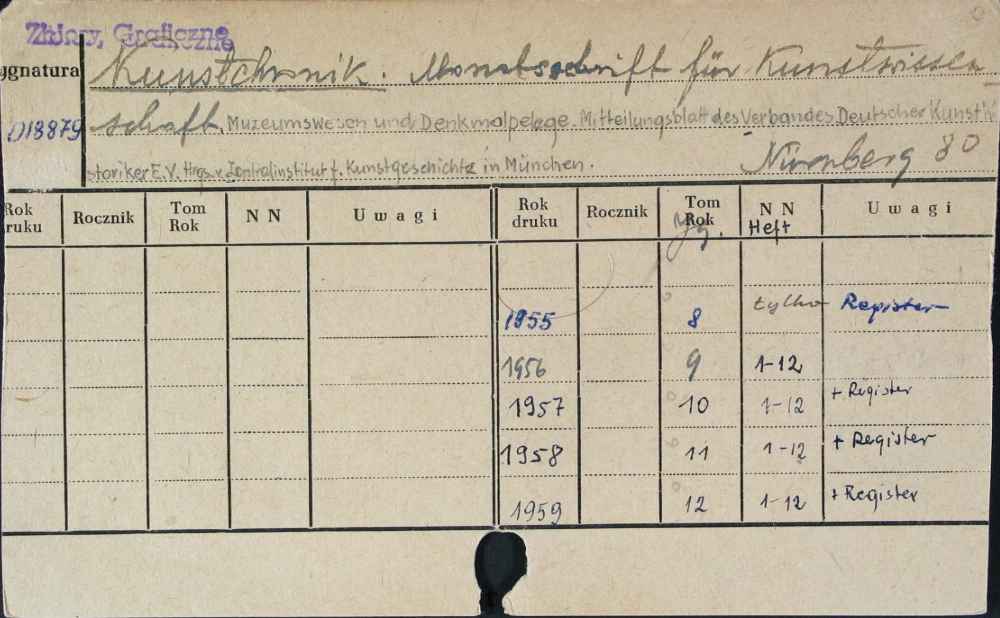 Zbiory Graficzne
ygnatura Kunstchronik. Monatsschrift für Kunstwissen-
D18879 schaft, Muzeumswesen und Denkmalpelege. Mitteilungsblatt des Verbandes Deutscher Kunsthi
storiker E.V. Hrgs. v. Zentralinstitut f. Kunstgeschichte in München. Nürnberg 80
Rok druku Rocznik Tom Rok N N U w a g i Rok druku Rocznik Tom Rok N N U w a g i
Jg. Heft
1955 8 tylko Register
1956 9 1-12
1957 10 1-12 + Register
1958 11 1-12 + Register
1959 12 1-12 + Register